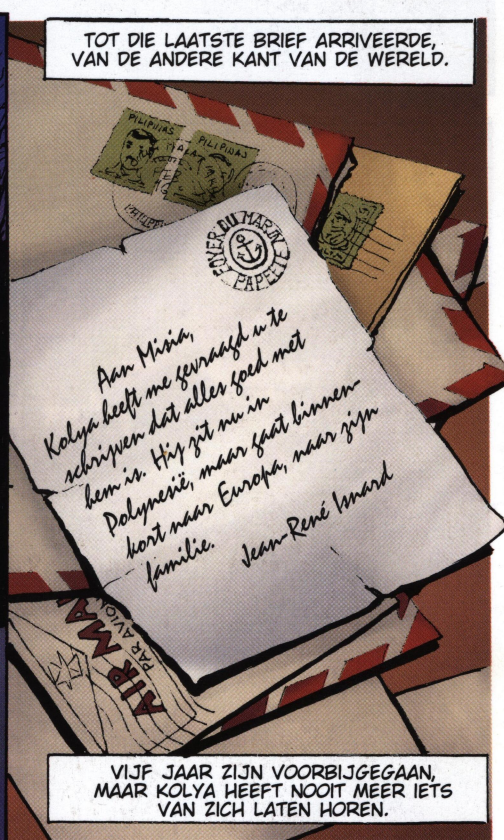 TOT DIE LAATSTE BRIEF ARRIVEERDE,
VAN DE ANDERE KANT VAN DE WERELD.
PILIPINAS
PILIPINAS
FOYER DU MARIN
PAPEETE
Aan Misia,
Kolya heeft me gevraagd u te
schrijven dat alles goed met
hem is. Hij zit nu in
Polynesië, maar gaat binnen-
kort naar Europa, naar zijn
familie.
Jean-René Isnard
AIR MAI
PAR AVION
VIJF JAAR ZIJN VOORBIJGEGAAN,
MAAR KOLYA HEEFT NOOIT MEER IETS
VAN ZICH LATEN HOREN.